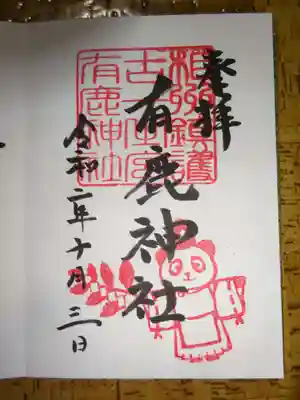 奉拝
相州鎮護
有鹿神社
有鹿神社
令和二年十月三日